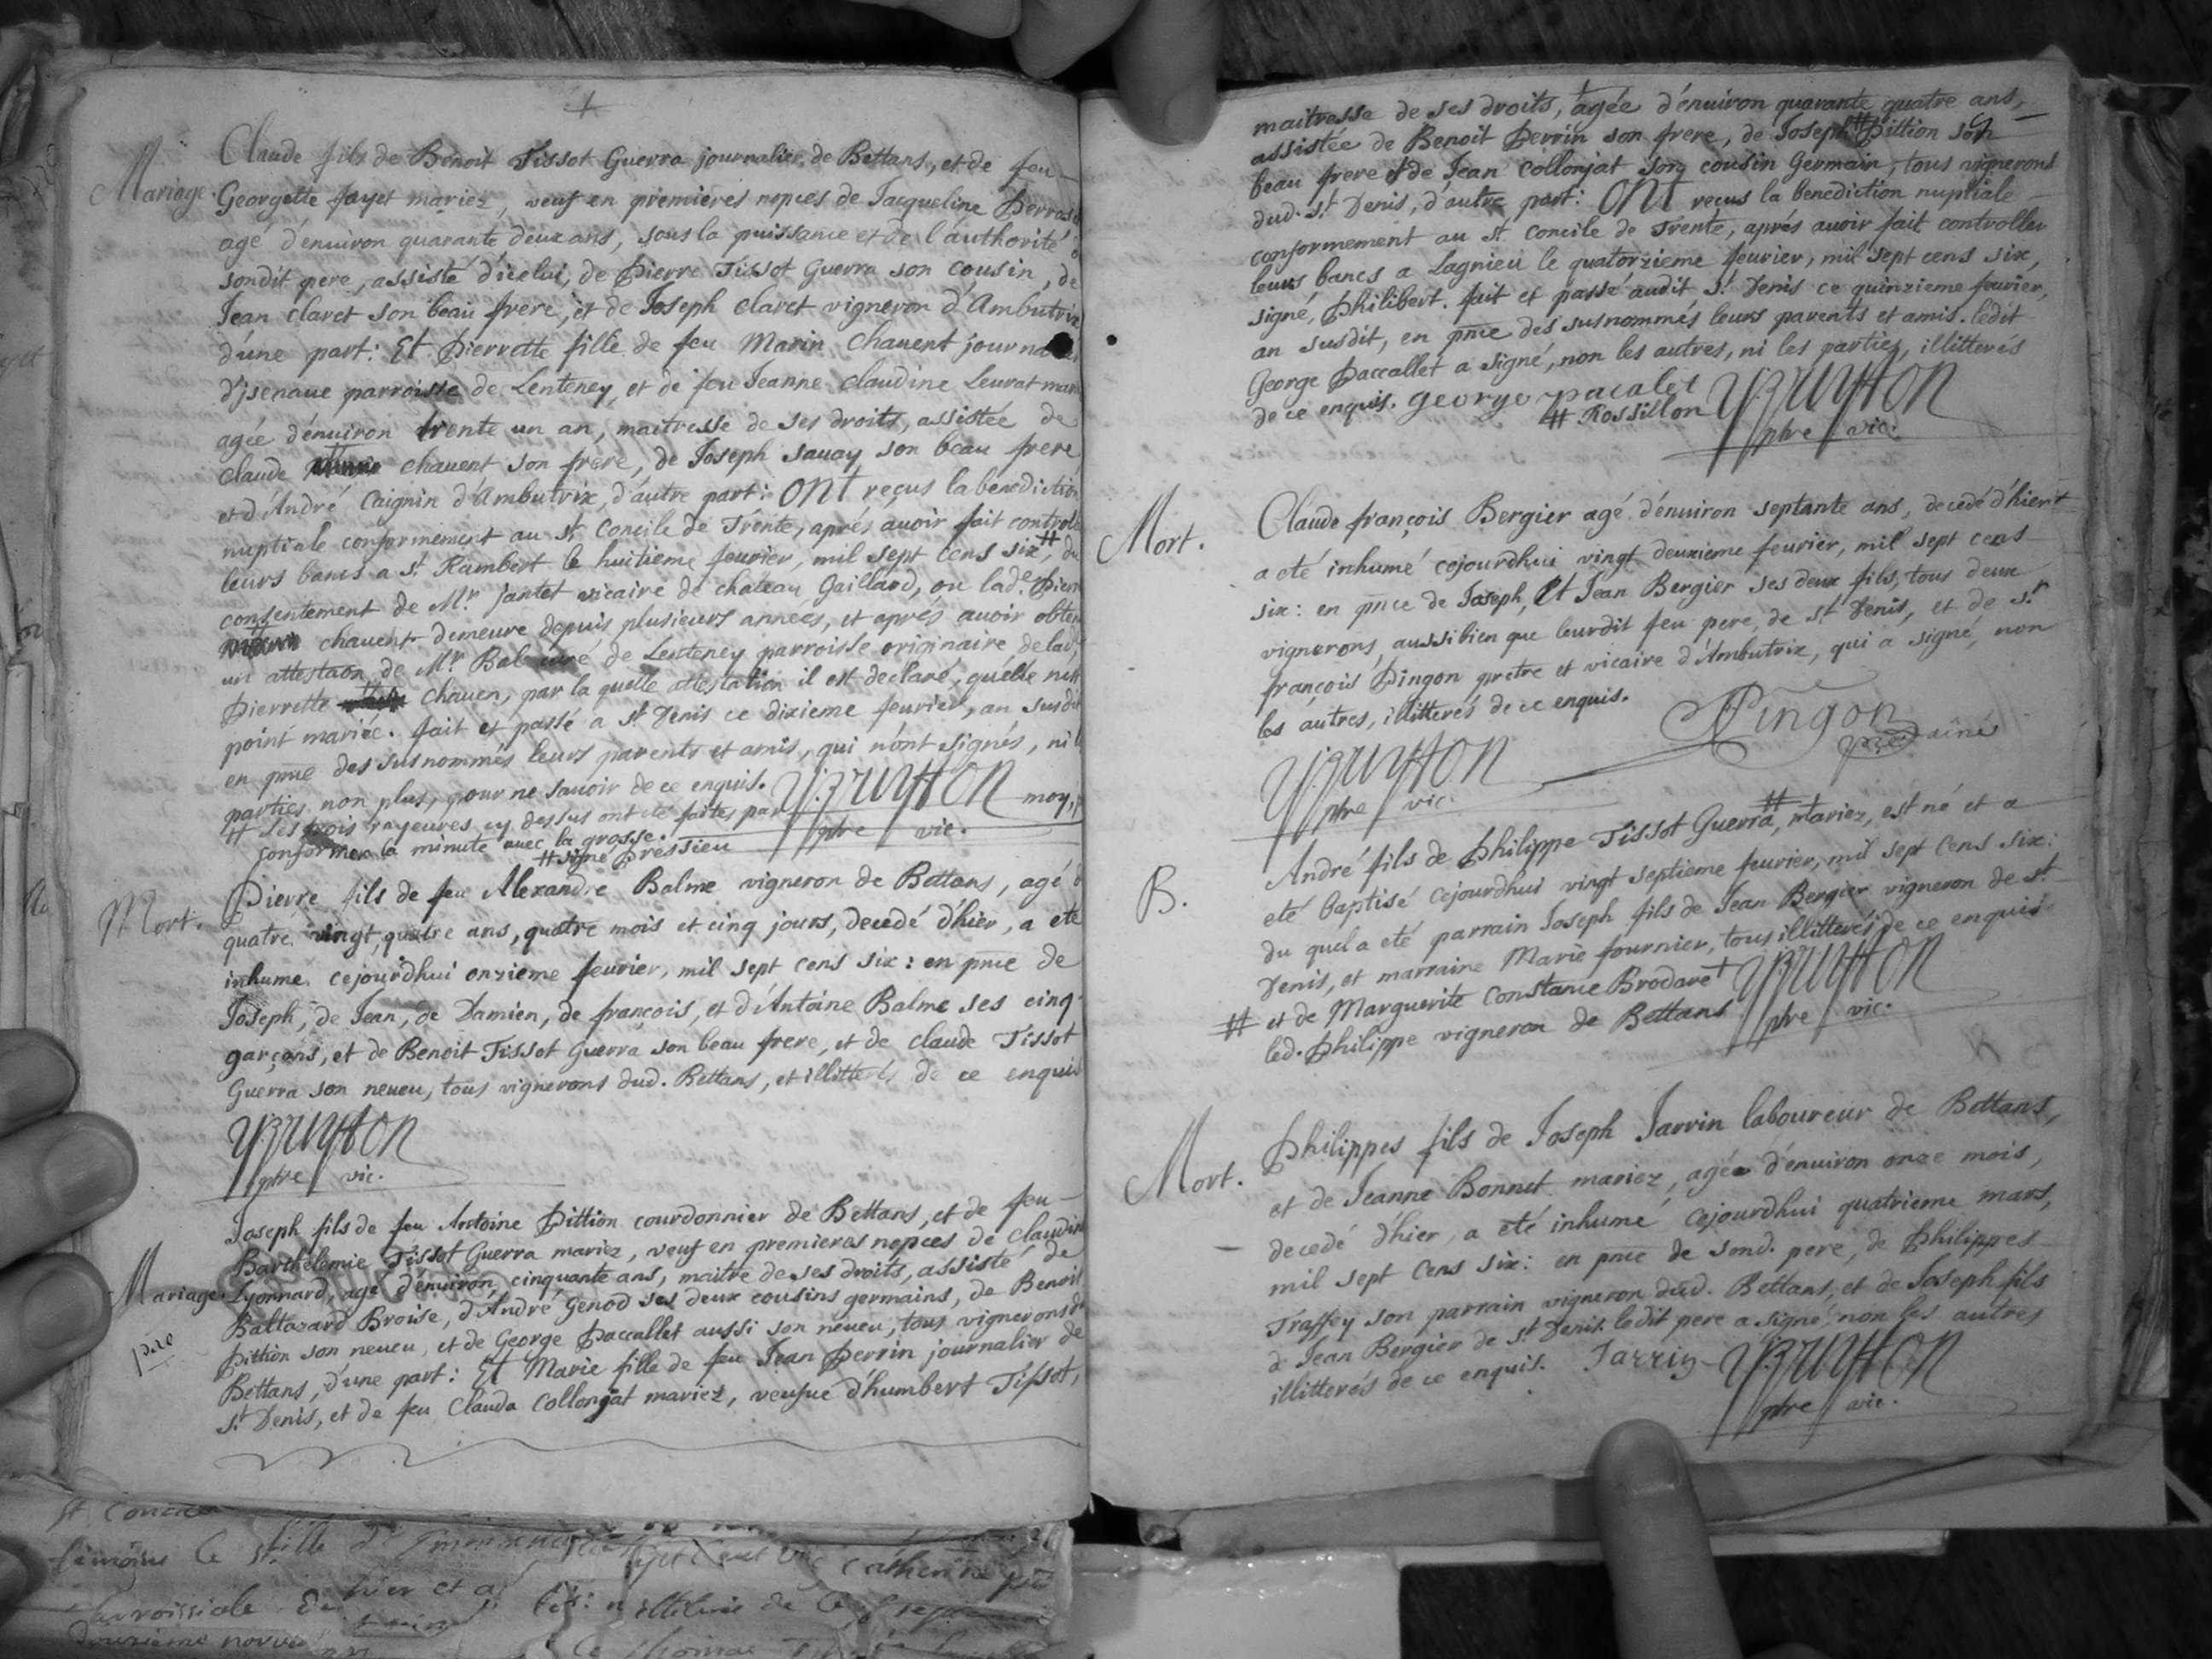 Mariage.
Claude fils de Benoit Tissot Guerra journalier de Bettans, et de feu
Georgette fayet mariez, veuf en premieres nopces de Jacqueline
agé d'enuiron quarante deux ans, sous la puissance et de l'authorité
sondit pere, assisté d'icelui, de Pierre Tissot Guerra son cousin, de
Jean claret son beau frere, et de Joseph claret vigneron d'Ambutrix
d'une part: Et Pierrette fille de feu Marin chauent
d'jsenaue parroisse de Lenteney, et de feu Jeanne claudine Leurat
agée d'enuiron trente un an, maitresse de ses droits, assistée de
claude chauent son frere, de Joseph sauay son beau frere
et d'André Caignin d'Ambutrix, d'autre part: ONt reçus la benediction
nuptiale conformement au st. Concile de Trente, aprés auoir fait
leurs bancs a st. Rambert le huitieme feurier, mil sept cens six #
consentement de Mr. jantet vicaire de chateau Gaillard, ou lade.
chauent demeure depuis plusieurs années, et aprés auoir
un attestaõn de Mr. Bal curé de Lenteney parroisse originaire de lad.
Pierrette chauen, par la quelle attestation il est declaré, qu'elle
point mariée. fait et passé a st. Denis ce dixieme feurier, an susdit
en pñce des susnommés leurs parents et amis, qui n'ont signés, ni
parties non plus, pour ne sauoir de ce enquis.
# Les trois rayeures cy dessus ont eté faites par moy,
conformer la minute auec la grosse.
# signé Pressieu
ptre vic.
Mort.
Pierre fils de feu Alexandre Balme vigneron de Bettans, agé
quatre vingt quatre ans, quatre mois et cinq jours, decedé d'hier, a eté
inhume cejourd'hui onzieme feurier, mil sept cens six: en pñce de
Joseph, de Jean, de Damien, de françois, et d'Antoine Balme ses cinq
garçons, et de Benoit Tissot Guerra son beau frere, et de claude Tissot
Guerra son neueu, tous vignerons dud. Bettans, et de ce enquis
ptre vic.
Mariage.
Joseph fils de feu Antoine Pittion courdonnier de Bettans, et de feu
Barthelemie Tissot Guerra mariez, veuf en premieres nopces de
Lyonnard, agé d'enuiron cinquante ans, maitre de ses droits, assisté de
Baltazard Broise, d'André Genod ses deux cousins germains, de Benoit
Pittion son neueu, et de George Paccallet aussi son neueu, tous vignerons
Bettans, d'une part: Et Marie fille de feu Jean Perrin journalier de
st. Denis, et de feu Clauda Collonjat mariez, veufue d'humbert Tissot,
maitresse de ses droits, agée d'enuiron quarante quatre ans,
assistée de Benoit Perrin son frere, de Joseph # Pittion son
beau frere et de Jean collonjat son cousin Germain, tous vignerons
dud. st. Denis, d'autre part: ONt reçus la benediction nuptiale
conformement au st. concile de Trente, aprés auoir fait controller
leurs bancs a Lagnieu le quatorzieme feurier, mil sept cens six,
signé, Philibert. fait et passé audit st. Denis ce quinzieme feurier,
an susdit, en pñce des susnommés leurs parents et amis. ledit
George Paccallet a signé, non les autres, ni les parties, illitterés
de ce enquis. george pacalet
# Rossillon
ptre vic.
Mort.
Claude françois Bergier agé d'enuiron septante ans, decedé d'hier
a eté inhumé cejourdhui vingt deuxieme feurier, mil sept cens
six: en pñce de Joseph, Et Jean Bergier ses deux fils, tous deux
vignerons, aussi bien que leurdit feu pere, de st. Denis, et de sr.
françois Pingon pretre et vicaire d'Ambutrix, qui a signé, non
les autres, illitterés de ce enquis.
Pingon
ainé
ptre vic.
B.
André fils de Philippe Tissot Guerra #, mariez, est né et a
eté baptisé cejourdhui vingt septieme feurier, mil sept cens six:
du quel a eté parrain Joseph fils de Jean Bergier vigneron de st.
Denis, et marraine Marie fournier, tous illitterés de ce enquis
# et de Marguerite Constance Brodaret
led. Philippe vigneron de Bettans
ptre vic.
Mort.
Philippes fils de Joseph Jarrin laboureur de Bettans,
et de Jeanne Bonnet mariez, agé d'enuiron onze mois,
decedé d'hier, a eté inhumé cejourdhui quatrieme mars,
mil sept cens six: en pñce de sond. pere, de Philippes
Traffey son parrain vigneron dud. Bettans, et de Joseph fils
de Jean Bergier de st. Denis. ledit pere a signé, non les autres
illitterés de ce enquis. Jarrin
ptre vic.